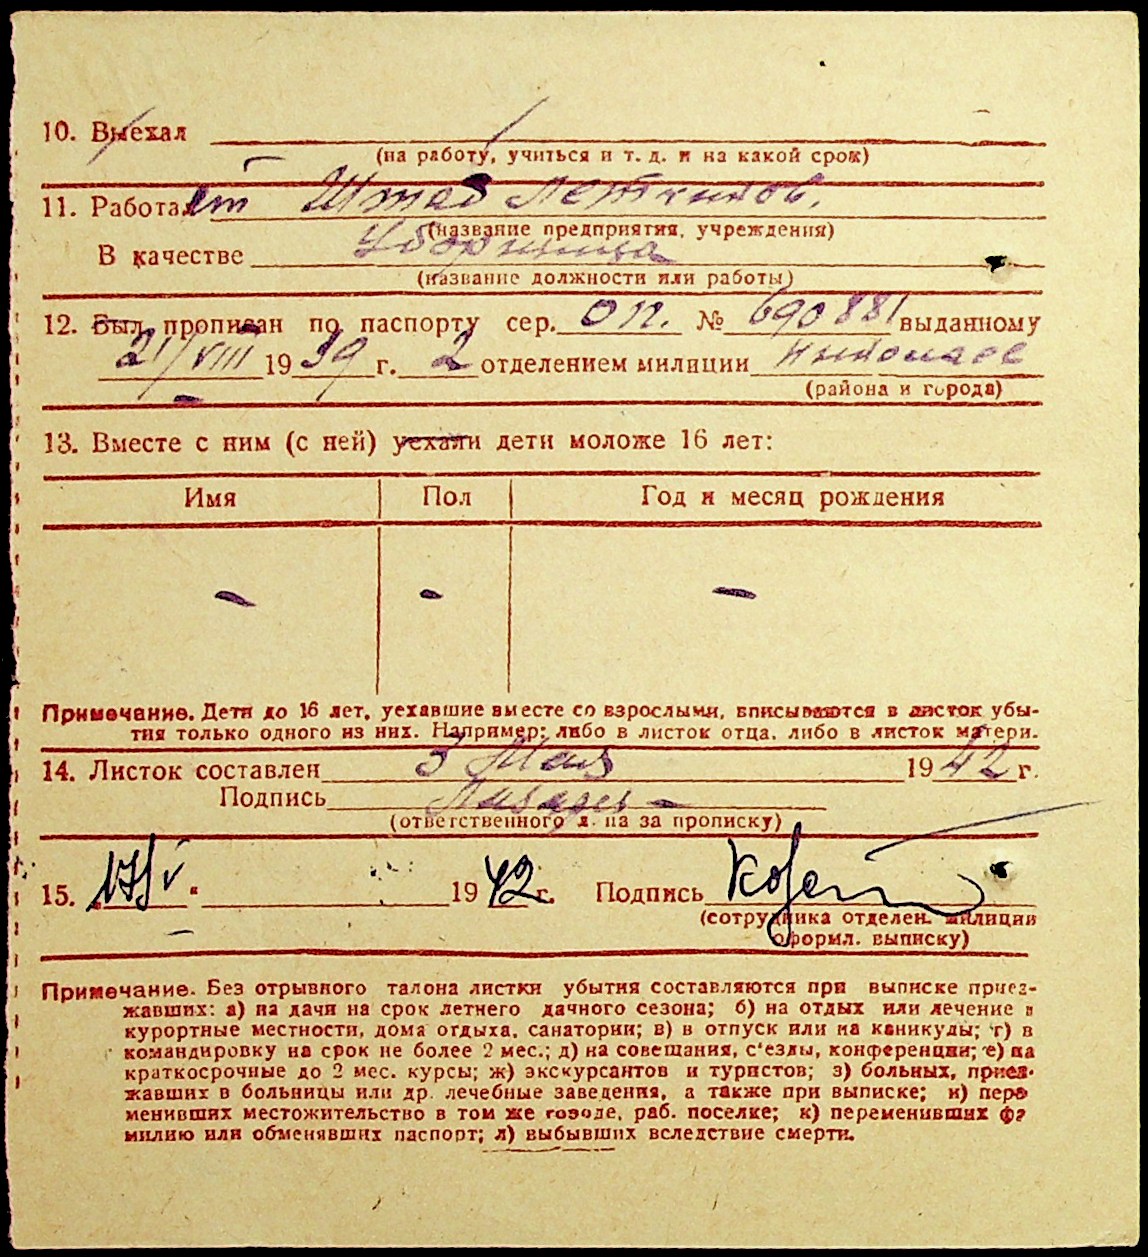 10. Выехал
(на работу, учиться и т. д. и на какой срок)
11. Работает Штаб
(название предприятия, учреждения)
В качестве Уборщица
(название должности или работы)
12. Был прописан по паспорту сер. ОП. № 690881 выданному
21/VIII 1939 г. 2 отделением милиции
(района и города)
13. Вместе с ним (с ней) уехали дети моложе 16 лет:
Имя Пол Год и месяц рождения
– – –
Примечание. Дети до 16 лет, уехавшие вместе со взрослыми, вписываются в листок убы-
тия только одного из них. Например: либо в листок отца, либо в листок матери.
14. Листок составлен 3 Мая 1942 г.
Подпись
(ответственного л. па за прописку)
15. „17/V “ 1942 г. Подпись
(сотрудника отделен. милиции
оформл. выписку)
Примечание. Без отрывного талона листки убытия составляются при выписке приез-
жавших: а) на дачи на срок летнего дачного сезона; б) на отдых или лечение в
курортные местности, дома отдыха, санатории; в) в отпуск или на каникулы; г) в
командировку на срок не более 2 мес.; д) на совещания, с'езды, конференции; е) на
краткосрочные до 2 мес. курсы; ж) экскурсантов и туристов; з) больных, приез-
жавших в больницы или др. лечебные заведения, а также при выписке; и) пере
менивших местожительство в том же городе, раб. поселке; к) переменивших фа
милию или обменявших паспорт; л) выбывших вследствие смерти.